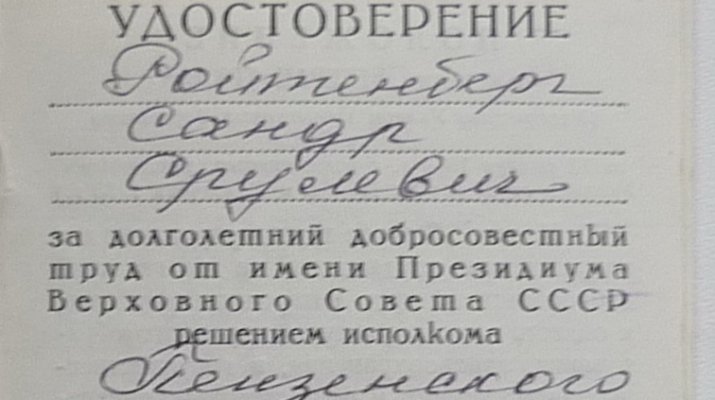 УДОСТОВЕРЕНИЕ
Ройтенберг
Сандр
Срулевич
за долголетний добросовестный
труд от имени Президиума
Верховного Совета СССР
решением исполкома
Пензенского